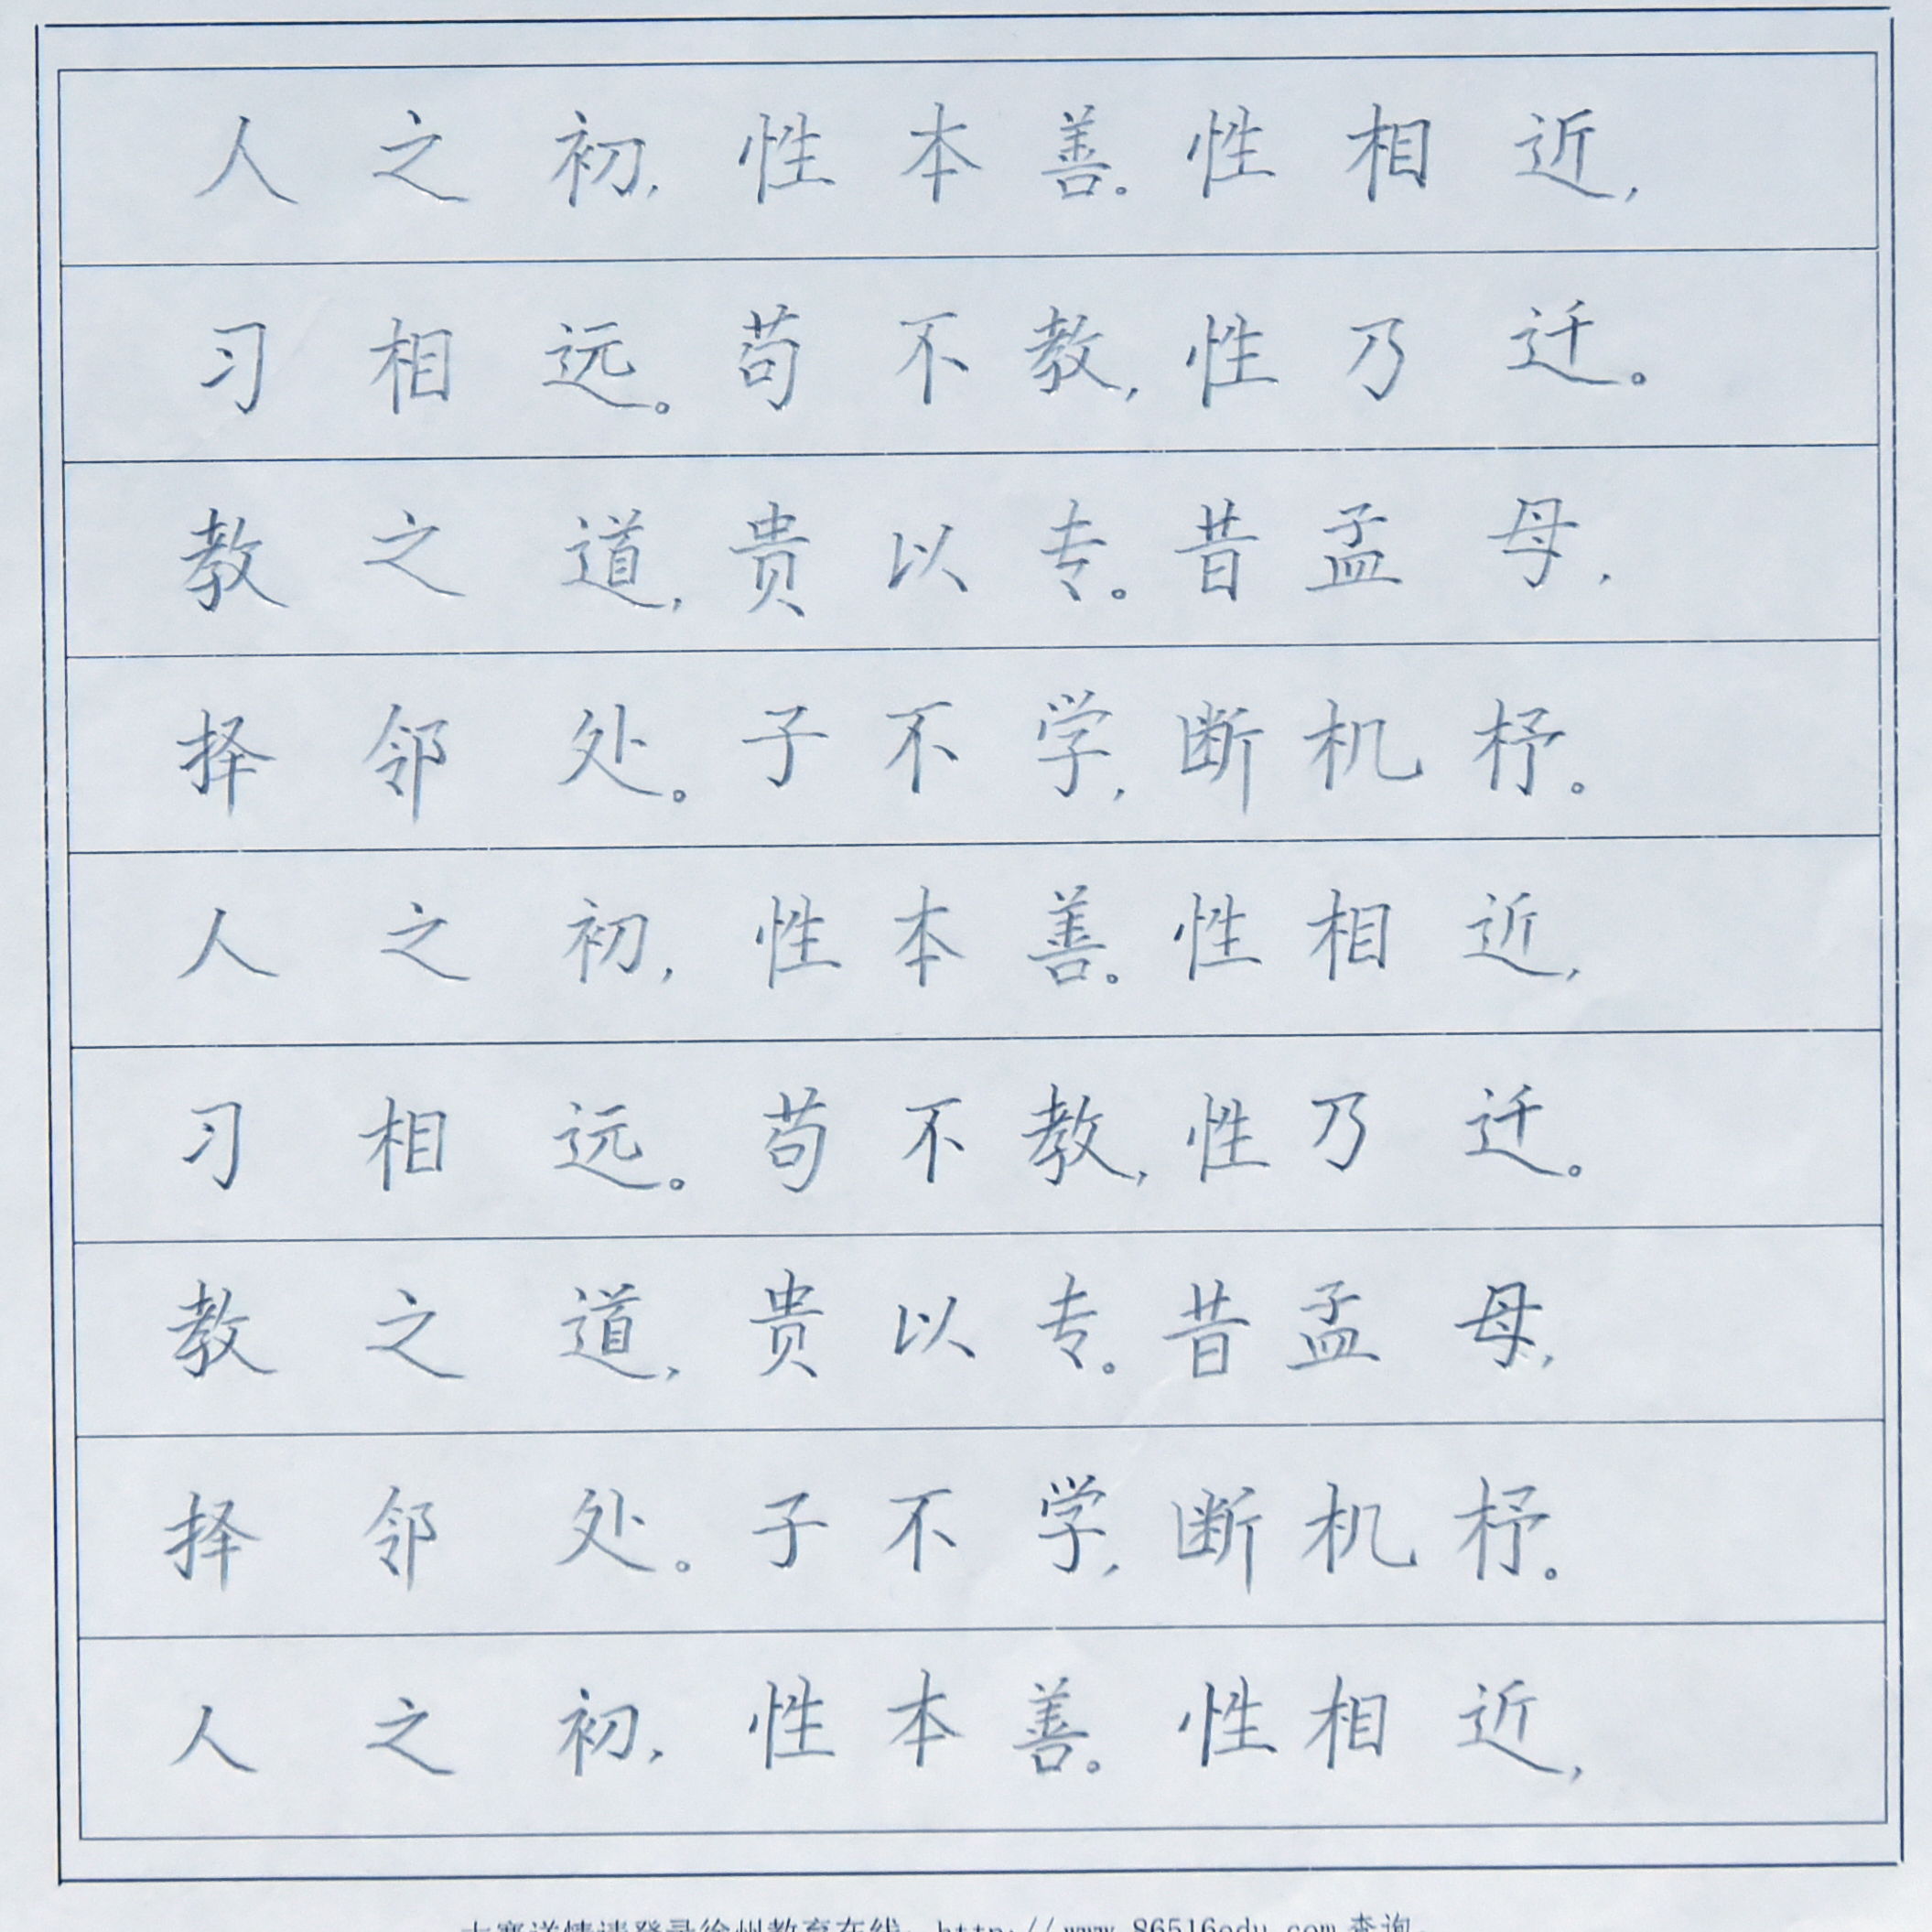 人之初,性本善。性相近,
习相远。苟不教,性乃迁。
教之道,贵以专。昔孟母,
择邻处。子不学,断机杼。
人之初,性本善。性相近,
习相远。苟不教,性乃迁。
教之道,贵以专。昔孟母,
择邻处。子不学,断机杼。
人之初,性本善。性相近,
大赛详情请登录徐州教育在线:http://www.86516edu.com查询。